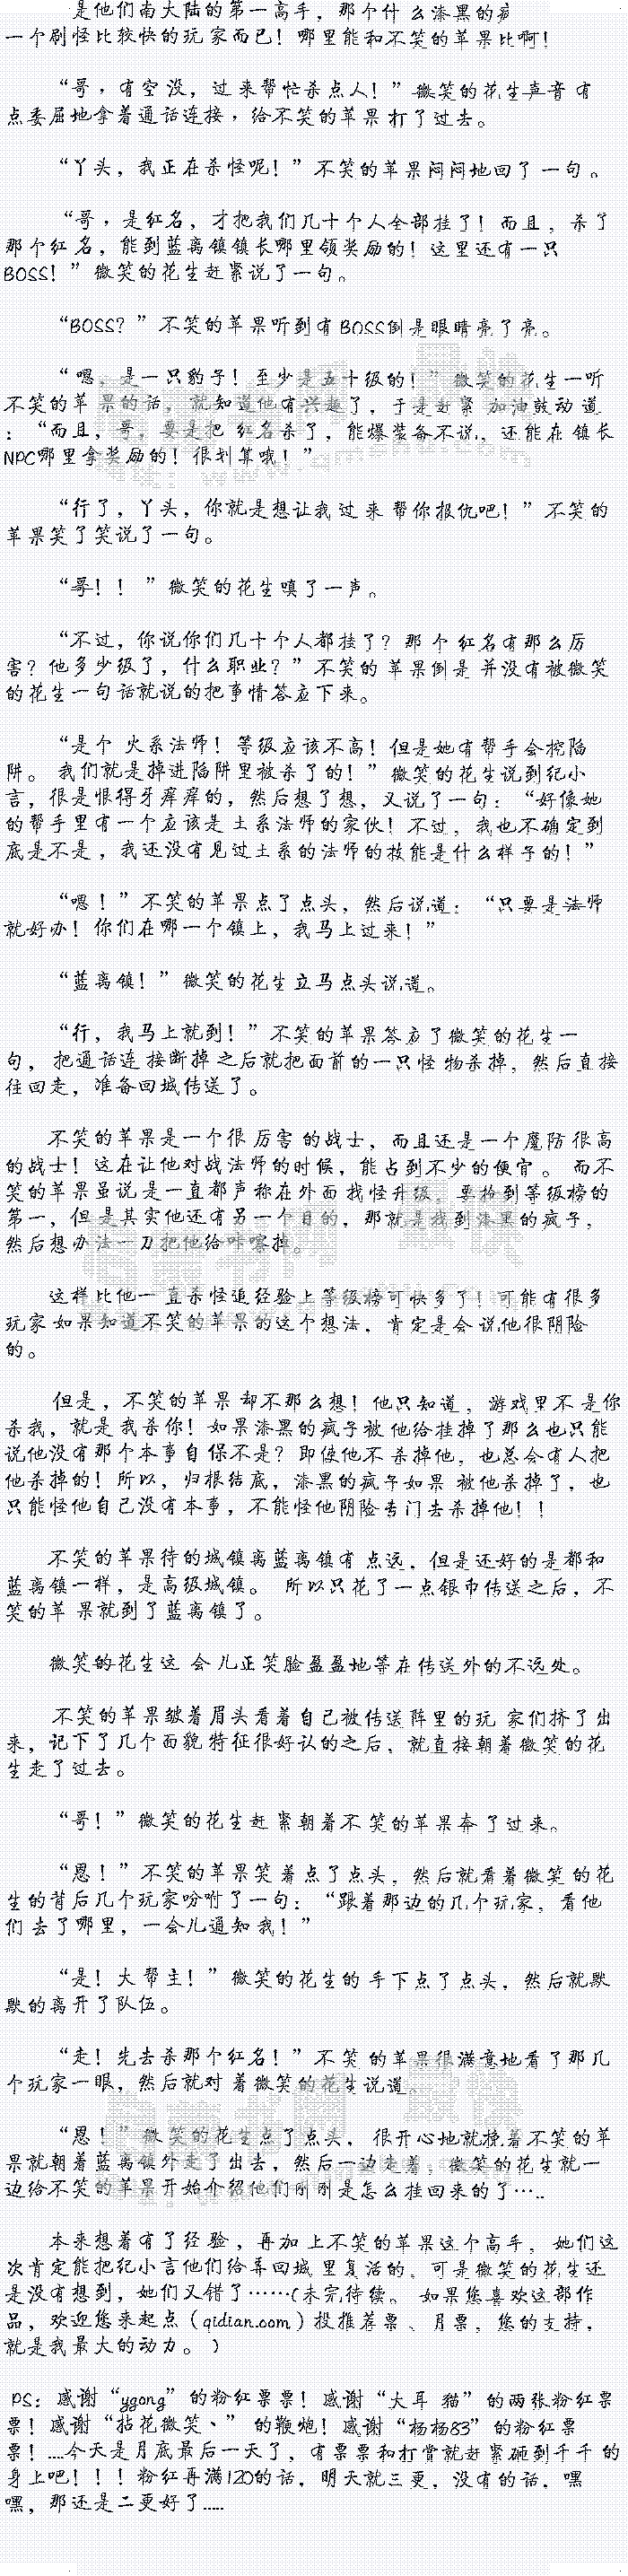 是他们南大陆的第一高手，那个什么漆黑的疯
一个刷怪比较快的玩家而已！哪里能和不笑的苹果比啊！
“哥，有空没，过来帮忙杀点人！”微笑的花生声音有
点委屈地拿着通话连接，给不笑的苹果打了过去。
“丫头，我正在杀怪呢！”不笑的苹果闷闷地回了一句。
“哥，是红名，才把我们几十个人全部挂了！而且，杀了
那个红名，能到蓝离镇镇长哪里领奖励的！这里还有一只
BOSS！”微笑的花生赶紧说了一句。
“BOSS？”不笑的苹果听到有BOSS倒是眼睛亮了亮。
“嗯，是一只豹子！至少是五十级的！”微笑的花生一听
不笑的苹果的话，就知道他有兴趣了，于是赶紧加油鼓动道
：“而且，哥，要是把红名杀了，能爆装备不说，还能在镇长
NPC哪里拿奖励的！很划算哦！”
“行了，丫头，你就是想让我过来帮你报仇吧！”不笑的
苹果笑了笑说了一句。
“哥！！”微笑的花生嗔了一声。
“不过，你说你们几十个人都挂了？那个红名有那么厉
害？他多少级了，什么职业？”不笑的苹果倒是并没有被微笑
的花生一句话就说的把事情答应下来。
“是个火系法师！等级应该不高！但是她有帮手会挖陷
阱。我们就是掉进陷阱里被杀了的！”微笑的花生说到纪小
言，很是恨得牙痒痒的，然后想了想，又说了一句：“好像她
的帮手里有一个应该是土系法师的家伙！不过，我也不确定到
底是不是，我还没有见过土系的法师的技能是什么样子的！”
“嗯！”不笑的苹果点了点头，然后说道：“只要是法师
就好办！你们在哪一个镇上，我马上过来！”
“蓝离镇！”微笑的花生立马点头说道。
“行，我马上就到！”不笑的苹果答应了微笑的花生一
句，把通话连接断掉之后就把面前的一只怪物杀掉，然后直接
往回走，准备回城传送了。
不笑的苹果是一个很厉害的战士，而且还是一个魔防很高
的战士！这在让他对战法师的时候，能占到不少的便宜。而不
笑的苹果虽说是一直都声称在外面找怪升级，要抢到等级榜的
第一，但是其实他还有另一个目的，那就是找到漆黑的疯子，
然后想办法一刀把他给咔嚓掉。
这样比他一直杀怪追经验上等级榜可快多了！可能有很多
玩家如果知道不笑的苹果的这个想法，肯定是会说他很阴险
的。
但是，不笑的苹果却不那么想！他只知道，游戏里不是你
杀我，就是我杀你！如果漆黑的疯子被他给挂掉了那么也只能
说他没有那个本事自保不是？即使他不杀掉他，也总会有人把
他杀掉的！所以，归根结底，漆黑的疯子如果被他杀掉了，也
只能怪他自己没有本事，不能怪他阴险专门去杀掉他！！
不笑的苹果待的城镇离蓝离镇有点远，但是还好的是都和
蓝离镇一样，是高级城镇。所以只花了一点银币传送之后，不
笑的苹果就到了蓝离镇了。
微笑的花生这会儿正笑脸盈盈地等在传送外的不远处。
不笑的苹果皱着眉头看着自己被传送阵里的玩家们挤了出
来，记下了几个面貌特征很好认的之后，就直接朝着微笑的花
生走了过去。
“哥！”微笑的花生赶紧朝着不笑的苹果奔了过来。
“恩！”不笑的苹果笑着点了点头，然后就看着微笑的花
生的背后几个玩家吩咐了一句：“跟着那边的几个玩家，看他
们去了哪里，一会儿通知我！”
“是！大帮主！”微笑的花生的手下点了点头，然后就默
默的离开了队伍。
“走！先去杀那个红名！”不笑的苹果很满意地看了那几
个玩家一眼，然后就对着微笑的花生说道。
“恩！”微笑的花生点了点头，很开心地就挽着不笑的苹
果就朝着蓝离镇外走了出去，然后一边走着，微笑的花生就一
边给不笑的苹果开始介绍他们刚刚是怎么挂回来的了…..
本来想着有了经验，再加上不笑的苹果这个高手，她们这
次肯定能把纪小言他们给弄回城里复活的，可是微笑的花生还
是没有想到，她们又错了……(未完待续。如果您喜欢这部作
品，欢迎您来起点（qidian.com）投推荐票、月票，您的支持，
就是我最大的动力。）
PS：感谢“ygong”的粉红票票！感谢“大耳猫”的两张粉红票
票！感谢“拈花微笑丶”的鞭炮！感谢“杨杨83”的粉红票
票！....今天是月底最后一天了，有票票和打赏就赶紧砸到千千的
身上吧！！！粉红再满120的话，明天就三更，没有的话，嘿
嘿，那还是二更好了.....